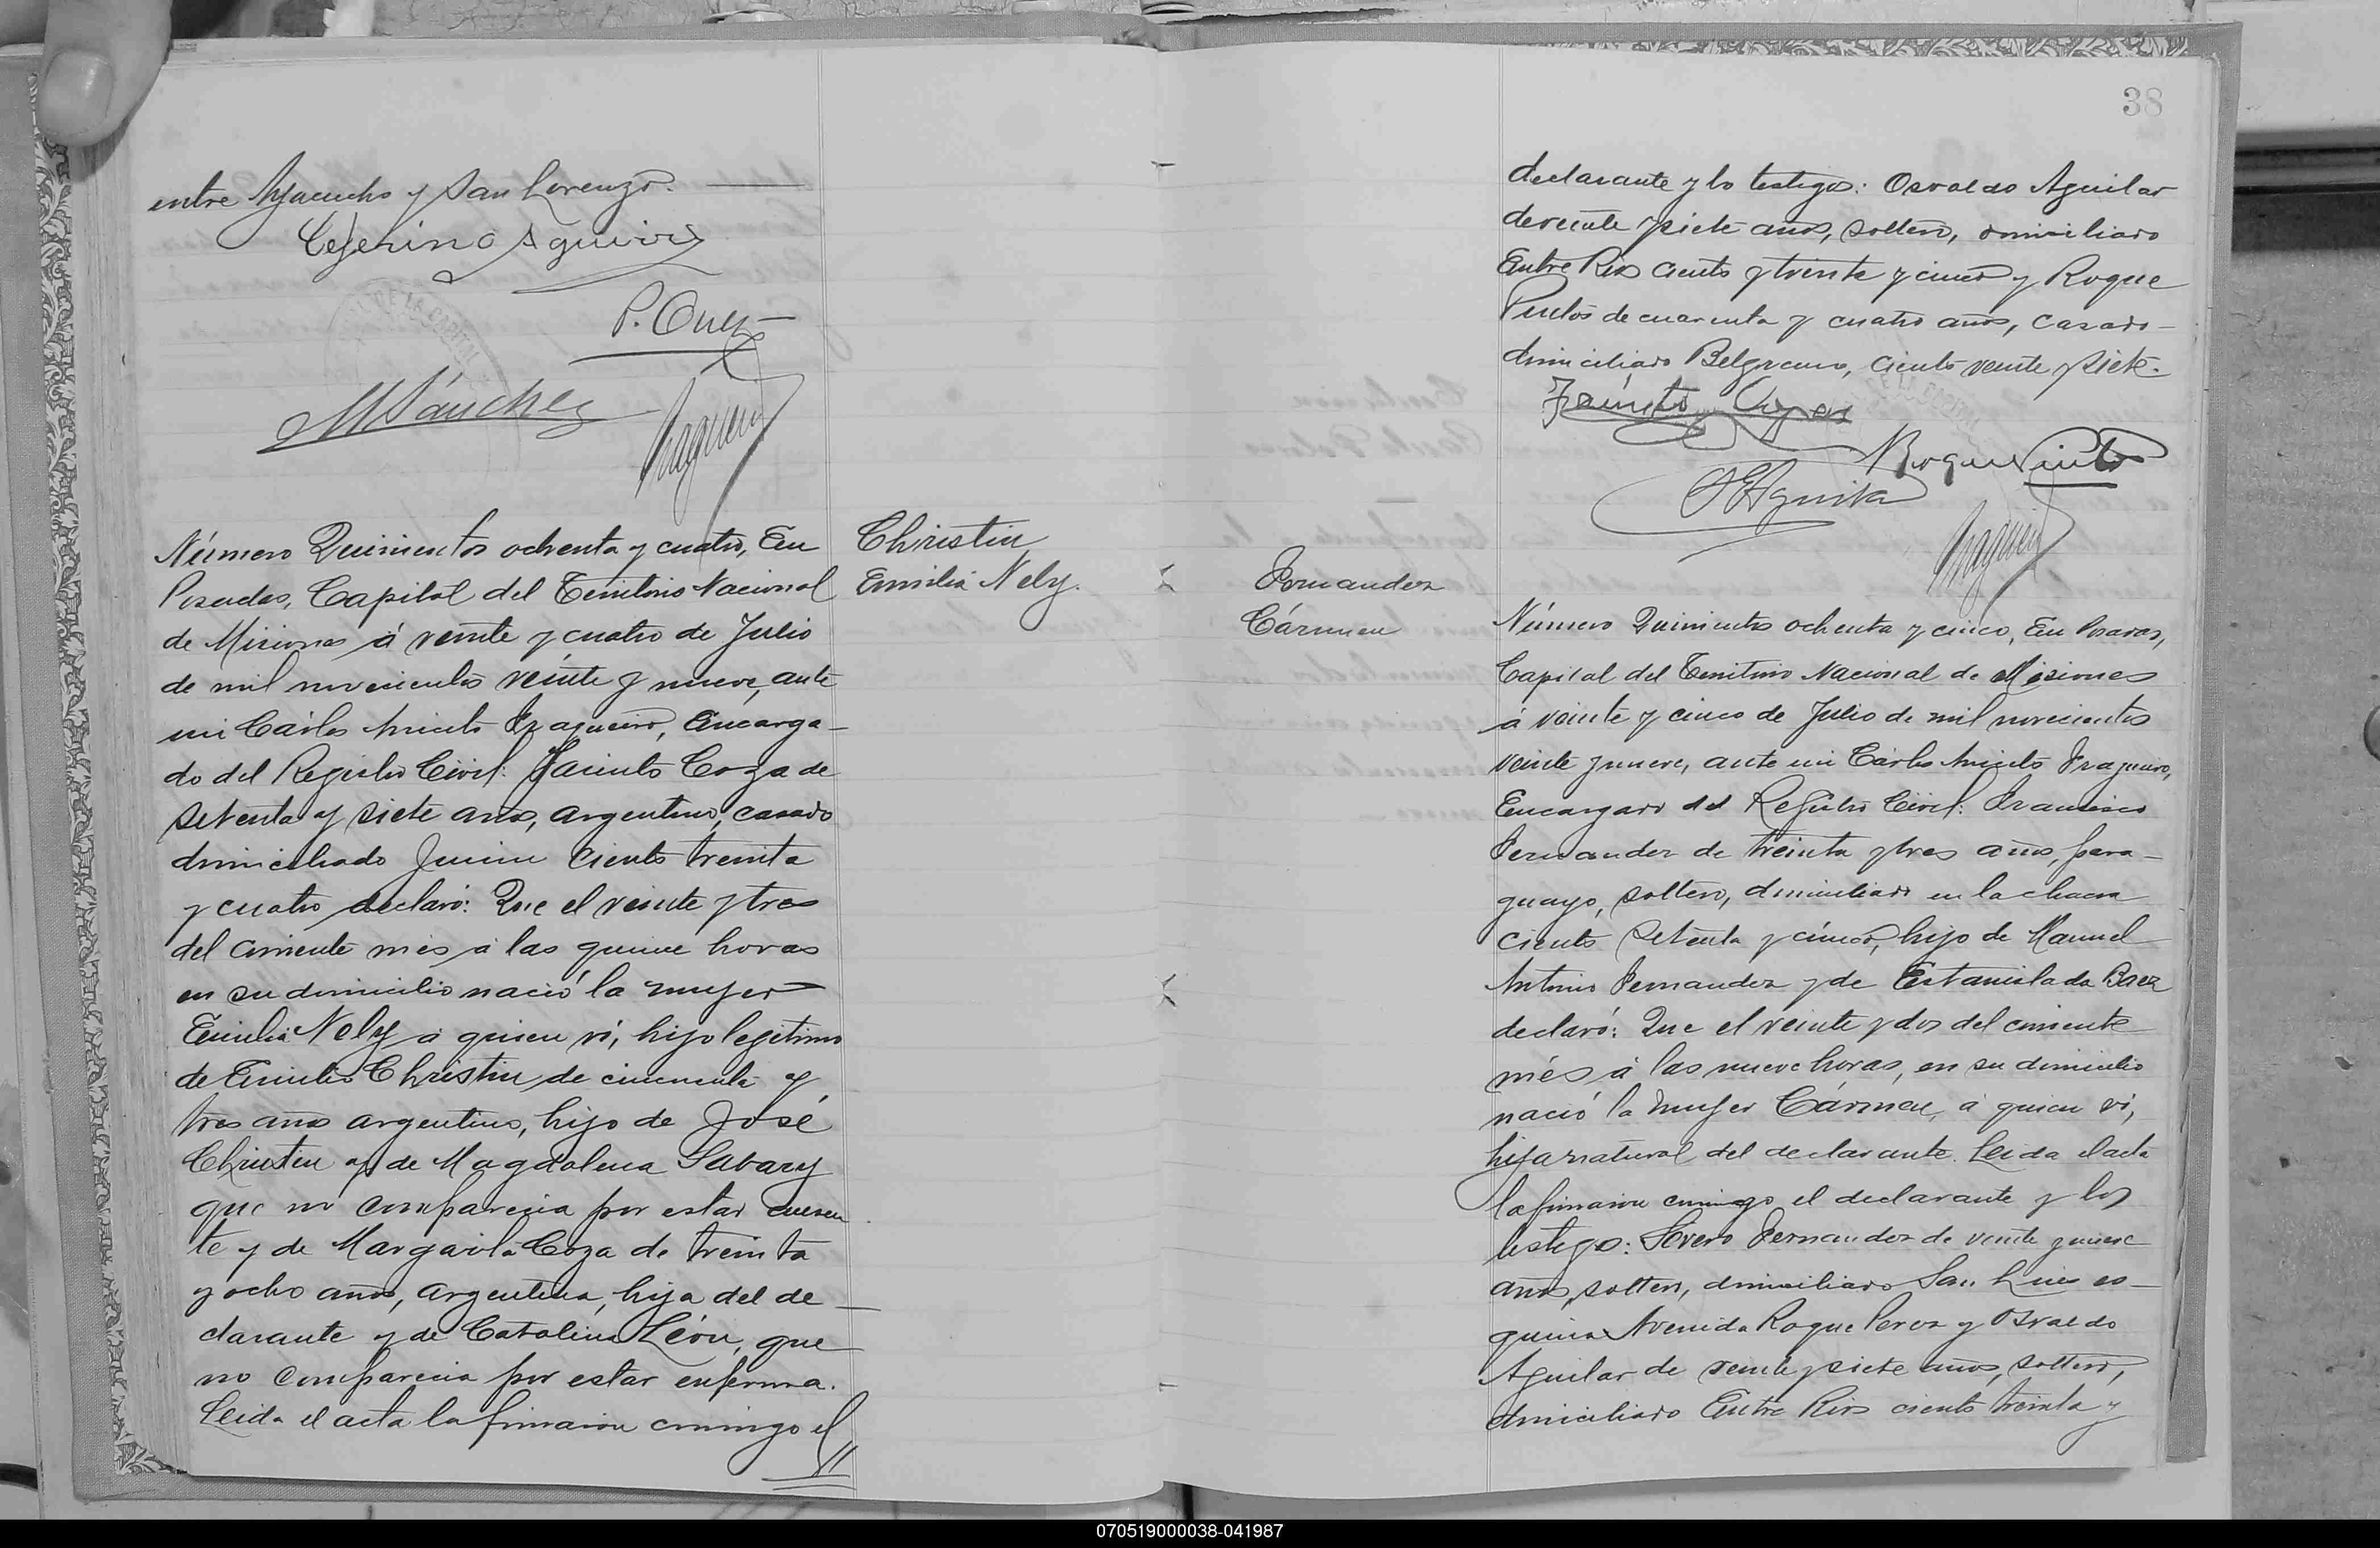 entre Ayacucho y San Lorenzo.
Ceferino Aguirre
P. Cney
DE LA CAPITAL
M Sánchez
Fragueiro
Número Quinientos ochenta y cuatro, En
Posadas, Capital del Territorio Nacional
de Misiones á veinte y cuatro de Julio
de mil novecientos veinte y nueve, ante
mi Cárlos Aniceto Fragueiro, Encarga-
do del Registro Civil: Jacinto Coza de
setenta y siete años, argentino, casado
domiciliado Junin ciento treinta
y cuatro declaró: Que el veinte y tres
del corriente més á las quince horas
en su domicilio nació la mujer
Emilia Nely á quien ví, hijo legitimo
de Emilio Christin de cincuenta y
tres años argentino, hijo de José
Christin y de Magdalena Savary
que no comparecia por estar ausen
te y de Margarita Coza de treinta
y ocho años, argentina, hija del de-
clarante y de Catalina Léon, que
no comparecia por estar enferma.
Leida el acta la firmaron conmigo el
Christin
Emilia Nely.
38
declarante y lo testigos: Osvaldo Aguilar
de veinte y siete años, soltero, domiciliado
Entre Rios ciento y treinta y cinco y Roque
Pintos de cuarenta y cuatro años, casado-
domiciliado Belgrano, ciento veinte y siete.
Jacinto
Roque Pinto
O E Aguilar
Fragueiro
Fernandez
Cármen
Número Quinientos ochenta y cinco, En Posadas,
Capital del Territorio Nacional de Misiones
á veinte y cinco de Julio de mil novecientos
veinte y nueve, ante mi Cárlos Aniceto Fragueiro,
Encargado del Registro Civil: Francisco
Fernandez de treinta y tres años, para-
guayo, soltero, domiciliado en la chacra
ciento setenta y cinco, hijo de Manuel
Antonio Fernandez y de Estanislada Baez
declaró: Que el veinte y dos del corriente
més á las nueve horas, en su domicilio
nació la mujer Cármen, á quien ví,
hija natural del declarante. Leida el acta
la firmaron conmigo el declarante y los
testigo: Severo Fernandez de veinte y nueve
años, soltero, domiciliado San Luis es-
quina Avenida Roque Perez y Osvaldo
Aguilar de veinte y siete años, soltero,
domiciliado Entre Rios ciento treinta y
070519000038-041987